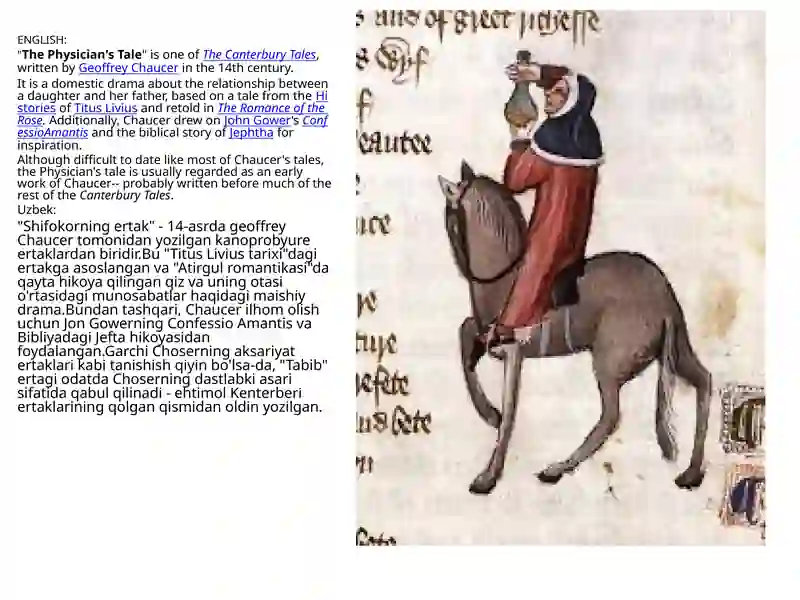 ENGLISH:
"The Physician's Tale" is one of The Canterbury Tales,
written by Geoffrey Chaucer in the 14th century.
It is a domestic drama about the relationship between
a daughter and her father, based on a tale from the Hi
stories of Titus Livius and retold in The Romance of the
Rose. Additionally, Chaucer drew on John Gower's Conf
essioAmantis and the biblical story of Jephtha for
inspiration.
Although difficult to date like most of Chaucer's tales,
the Physician's tale is usually regarded as an early
work of Chaucer-- probably written before much of the
rest of the Canterbury Tales.
Uzbek:
"Shifokorning ertak" - 14-asrda geoffrey
Chaucer tomonidan yozilgan kanoprobyure
ertaklardan biridir.Bu "Titus Livius tarixi"dagi
ertakga asoslangan va "Atirgul romantikasi"da
qayta hikoya qilingan qiz va uning otasi
o'rtasidagi munosabatlar haqidagi maishiy
drama.Bundan tashqari, Chaucer ilhom olish
uchun Jon Gowerning Confessio Amantis va
Bibliyadagi Jefta hikoyasidan
foydalangan.Garchi Choserning aksariyat
ertaklari kabi tanishish qiyin bo'lsa-da, "Tabib"
ertagi odatda Choserning dastlabki asari
sifatida qabul qilinadi - ehtimol Kenterberi
ertaklarining qolgan qismidan oldin yozilgan.